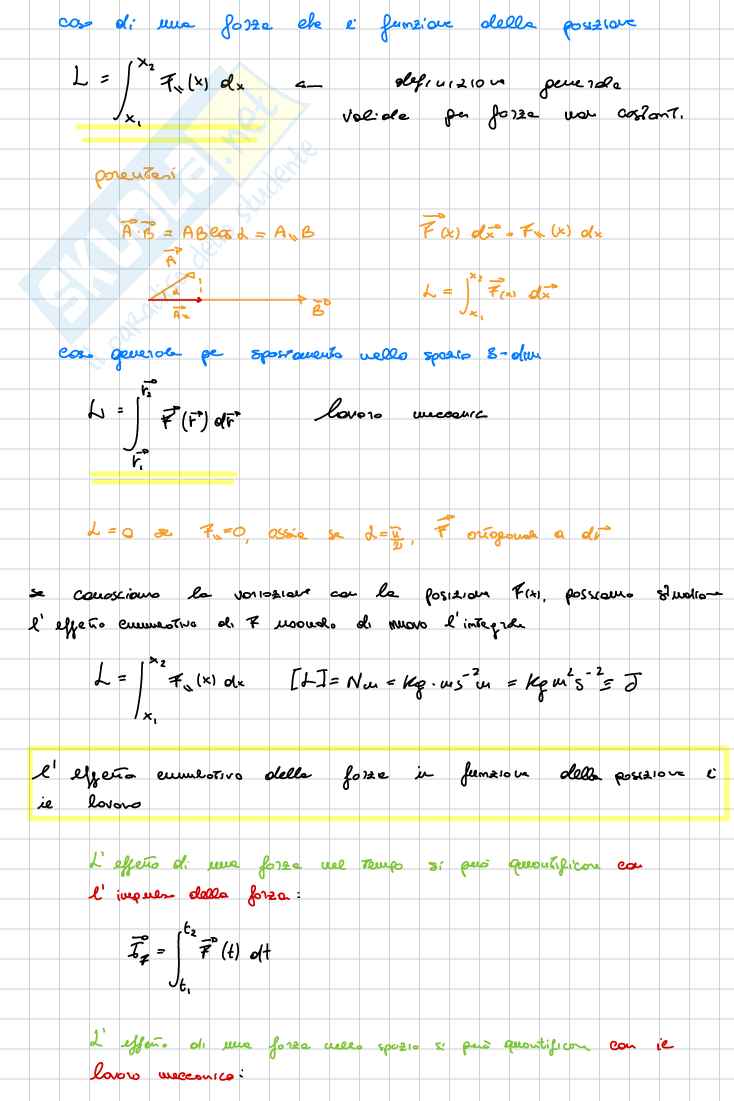 caso di una forza che è funzione della posizione
L = ∫_{x₁}^{x₂} F_{∥}(x) dx ← definizione generale
valida per forza non costant.
parentesi
A⃗·B⃗ = AB cos α = A_{∥} B
F⃗(x) dx⃗ = F_{∥}(x) dx
A⃗
α
A⃗_{∥}
B⃗
L = ∫_{x₁}^{x₂} F⃗(x) dx⃗
caso generale per spostamento nello spazio 3-dim
L = ∫_{r⃗₁}^{r⃗₂} F⃗(r⃗) dr⃗ lavoro meccanico
L = 0 se F_{∥}=0, ossia se α=π/2, F⃗ ortogonale a dr⃗
se conosciamo la variazione con la posizione F(x), possiamo studiare
l'effetto cumulativo di F usando di nuovo l'integrale
L = ∫_{x₁}^{x₂} F_{∥}(x) dx [L] = Nm = kg·ms⁻²m = kgm²s⁻² ≡ J
l'effetto cumulativo della forza in funzione della posizione è
il lavoro
L'effetto di una forza nel tempo si può quantificare con
l'impulso della forza:
I⃗_F = ∫_{t₁}^{t₂} F⃗(t) dt
L'effetto di una forza nello spazio si può quantificare con il
lavoro meccanico:
SKUOLA.net
il paradiso dello studente